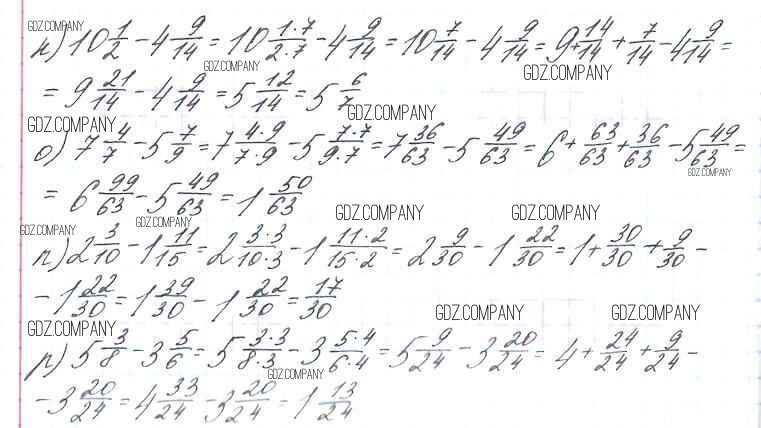 GDZ.COMPANY
н) 10 1/2 - 4 9/14 = 10 1·7/2·7 - 4 9/14 = 10 7/14 - 4 9/14 = 9 + 14/14 + 7/14 - 4 9/14 =
GDZ.COMPANY GDZ.COMPANY
= 9 21/14 - 4 9/14 = 5 12/14 = 5 6/7
GDZ.COMPANY GDZ.COMPANY
о) 7 4/7 - 5 7/9 = 7 4·9/7·9 - 5 7·7/9·7 = 7 36/63 - 5 49/63 = 6 + 63/63 + 36/63 - 5 49/63 =
GDZ.COMPANY
= 6 99/63 - 5 49/63 = 1 50/63
GDZ.COMPANY GDZ.COMPANY GDZ.COMPANY GDZ.COMPANY
п) 2 3/10 - 1 11/15 = 2 3·3/10·3 - 1 11·2/15·2 = 2 9/30 - 1 22/30 = 1 + 30/30 + 9/30 -
- 1 22/30 = 1 39/30 - 1 22/30 = 17/30
GDZ.COMPANY GDZ.COMPANY GDZ.COMPANY
р) 5 3/8 - 3 5/6 = 5 3·3/8·3 - 3 5·4/6·4 = 5 9/24 - 3 20/24 = 4 + 24/24 + 9/24 -
GDZ.COMPANY
- 3 20/24 = 4 33/24 - 3 20/24 = 1 13/24